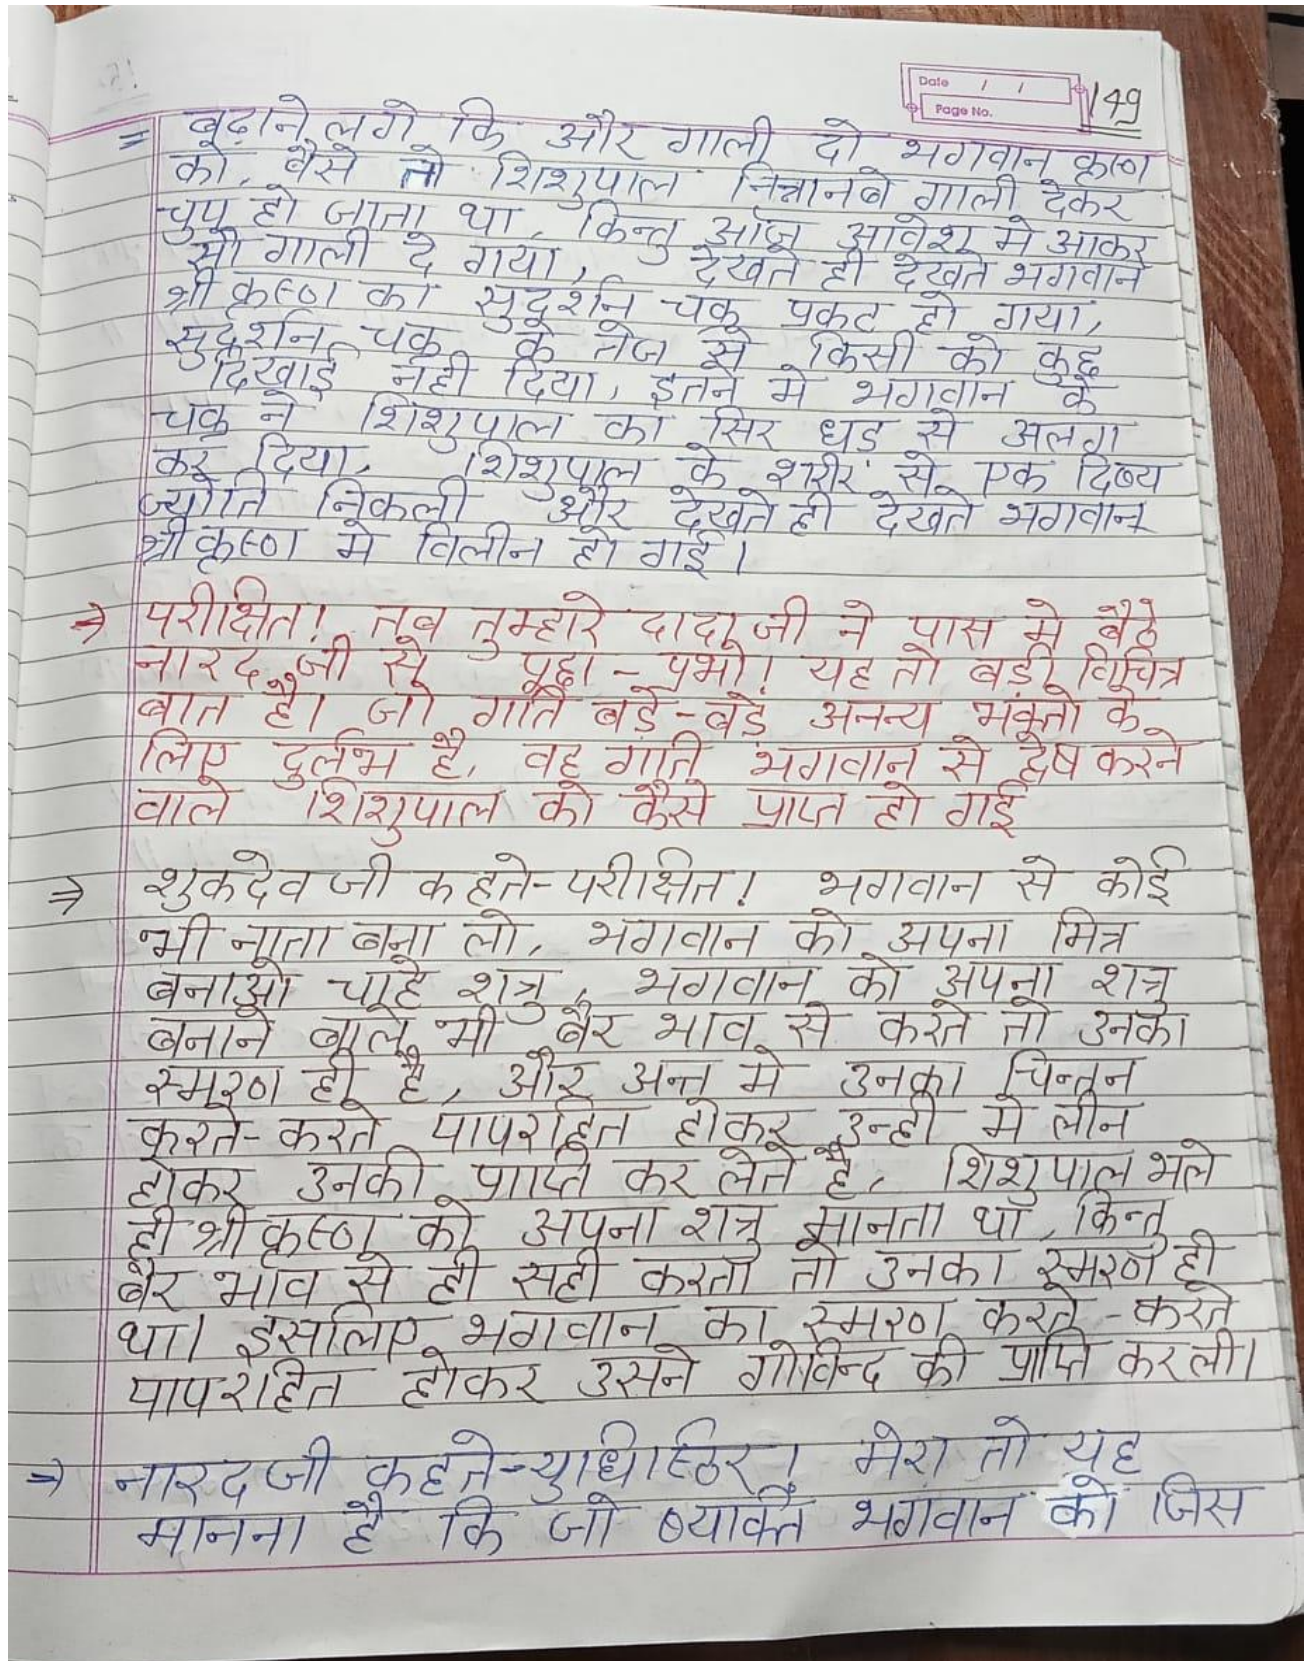 Date / /
Page No.
149
= बढ़ाने लगे कि और गाली दो भगवान कृष्ण
को, वैसे तो शिशुपाल निन्नानबे गाली देकर
चुप हो जाता था, किन्तु आज आवेश मे आकर
सौ गाली दे गया, देखते ही देखते भगवान
श्री कृष्ण का सुदर्शन चक्र प्रकट हो गया,
सुदर्शन चक्र के तेज से किसी को कुछ
दिखाई नही दिया, इतने मे भगवान के
चक्र ने शिशुपाल का सिर धड़ से अलग
कर दिया, शिशुपाल के शरीर से एक दिव्य
ज्योति निकली और देखते ही देखते भगवान
श्री कृष्ण मे विलीन हो गई।
→ परीक्षित! तब तुम्हारे दादा जी ने पास मे बैठे
नारद जी से पूछा - प्रभो! यह तो बड़ी विचित्र
बात है। जो गति बड़े-बड़े अनन्य भक्तो के
लिए दुर्लभ है, वह गति भगवान से द्वेष करने
वाले शिशुपाल को कैसे प्राप्त हो गई
⇒ शुकदेव जी कहते- परीक्षित! भगवान से कोई
भी नाता बना लो, भगवान को अपना मित्र
बनाओ चाहे शत्रु, भगवान को अपना शत्रु
बनाने बाले भी बैर भाव से करते तो उनका
स्मरण ही है, और अन्त मे उनका चिन्तन
करते-करते पापरहित होकर उन्ही मे लीन
होकर उनकी प्राप्ति कर लेते है, शिशुपाल भले
ही श्री कृष्ण को अपना शत्रु मानता था, किन्तु
बैर भाव से ही सही करता तो उनका स्मरण ही
था। इसलिए भगवान का स्मरण करते-करते
पापरहित होकर उसने गोविन्द की प्राप्ति कर ली।
→ नारद जी कहते- युधिष्ठिर! मेरा तो यह
मानना है कि जो व्यक्ति भगवान को जिस